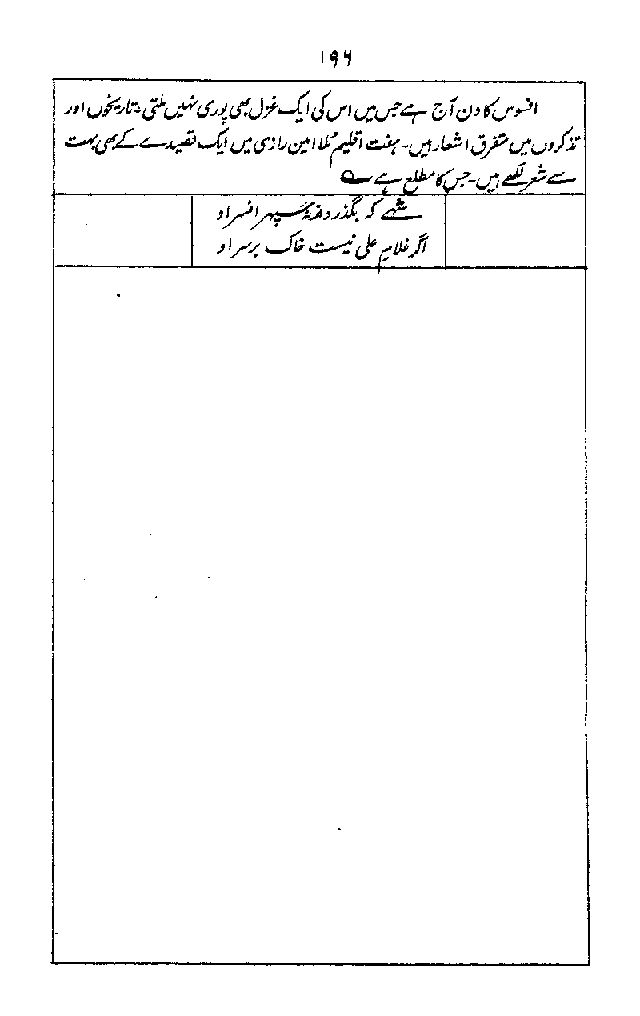 ۱۹۶
افسوس کا دن آج ہے جس میں اس کی ایک غزل بھی پوری نہیں ملتی۔ تاریخوں اور
تذکروں میں متفرق اشعار ہیں۔ ہفت اقلیم ملا امین رازی میں ایک قصیدے کے بھی بہت
سے شعر لکھے ہیں۔ جس کا مطلع ہے ؎
شہے کہ بگذرد از نہ سپہر افسر او
اگر غلامِ علی نیست خاک بر سر او